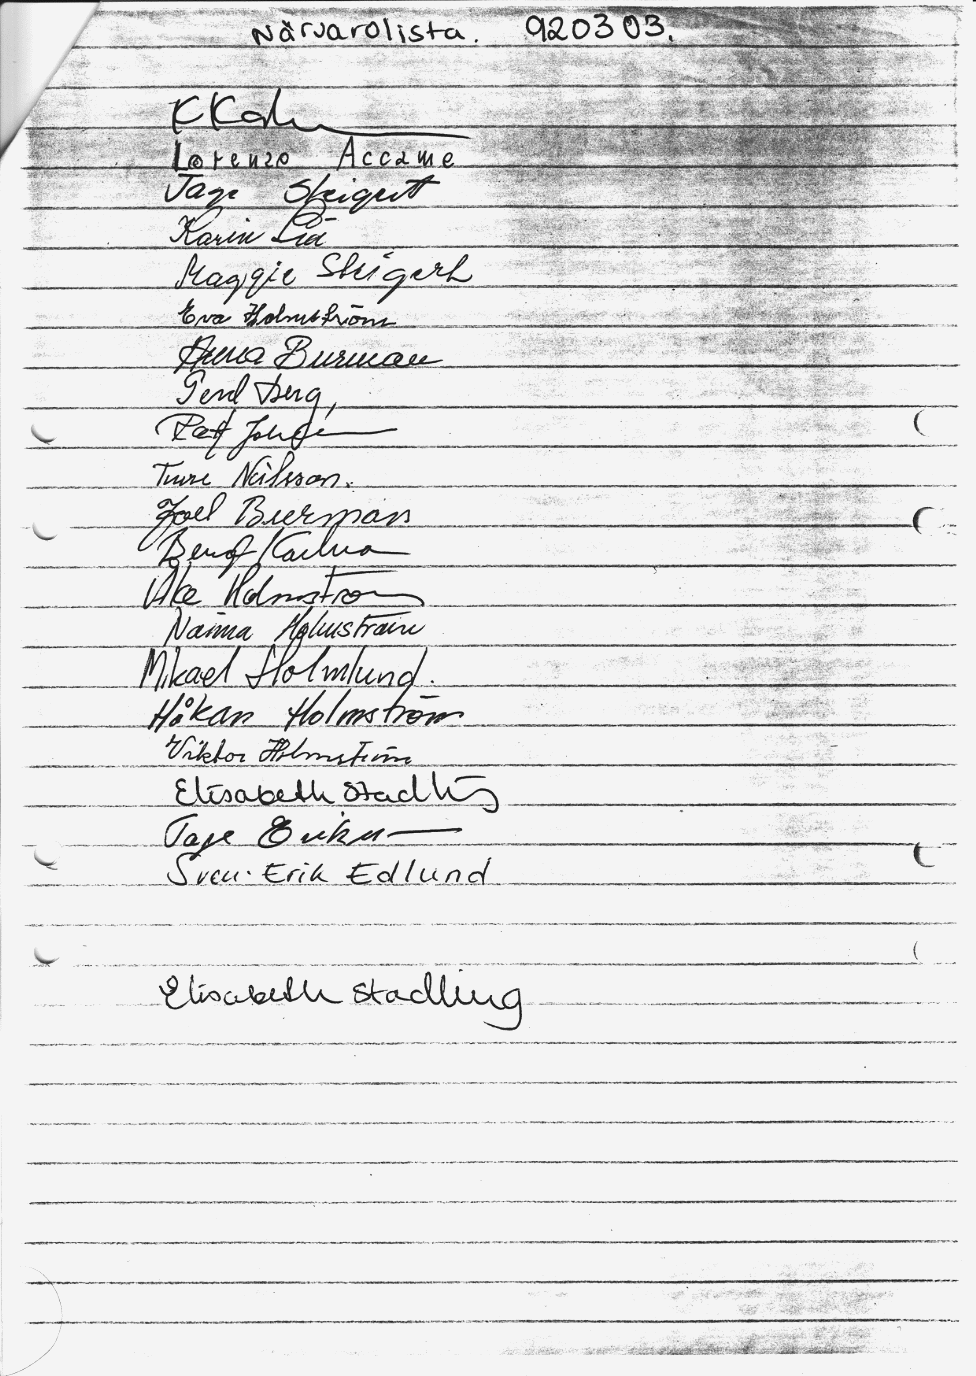 Närvarolista. 920303.
Lorenzo Accame
Tage Steigert
Karin
Maggie Steigert
Eva Holmström
Anna Burman
Gerd Berg,
Ture Neilsson.
Joel Buerman
Bengt
Åke Holmström
Naima Holmström
Mikael Holmlund.
Håkan Holmström
Viktor Holmström
Elisabeth Stadling
Tage
Sven-Erik Edlund
Elisabeth Stadling